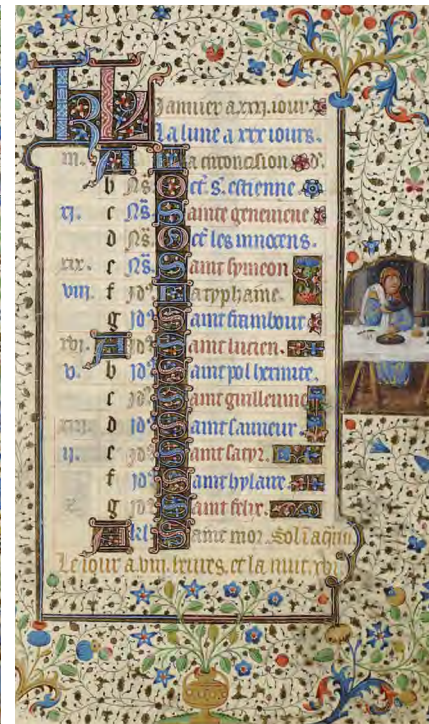 KL Januier a xxxi. iour.
La lune a xxx iours.
iii. A La circoncision
b Ns. Oct. s. estienne
xi. c Ns. Sainte geneuieue
d Ns. Oct les innocens.
xix. e Ns. Saint symeon
viii. f id. La typhaine.
g id. Saint frambout
xvi. A id. Saint lucien.
v. b id. Saint pol hermite.
c id. Saint guilleume
xiii. d id. Saint sauueur.
ii. e id. Saint satyr.
f id. Saint hylaire.
x. g id. Saint felix.
A kl. Saint mor. Sol i aqri
Le iour a viii. heures. et la nuit. xvi.